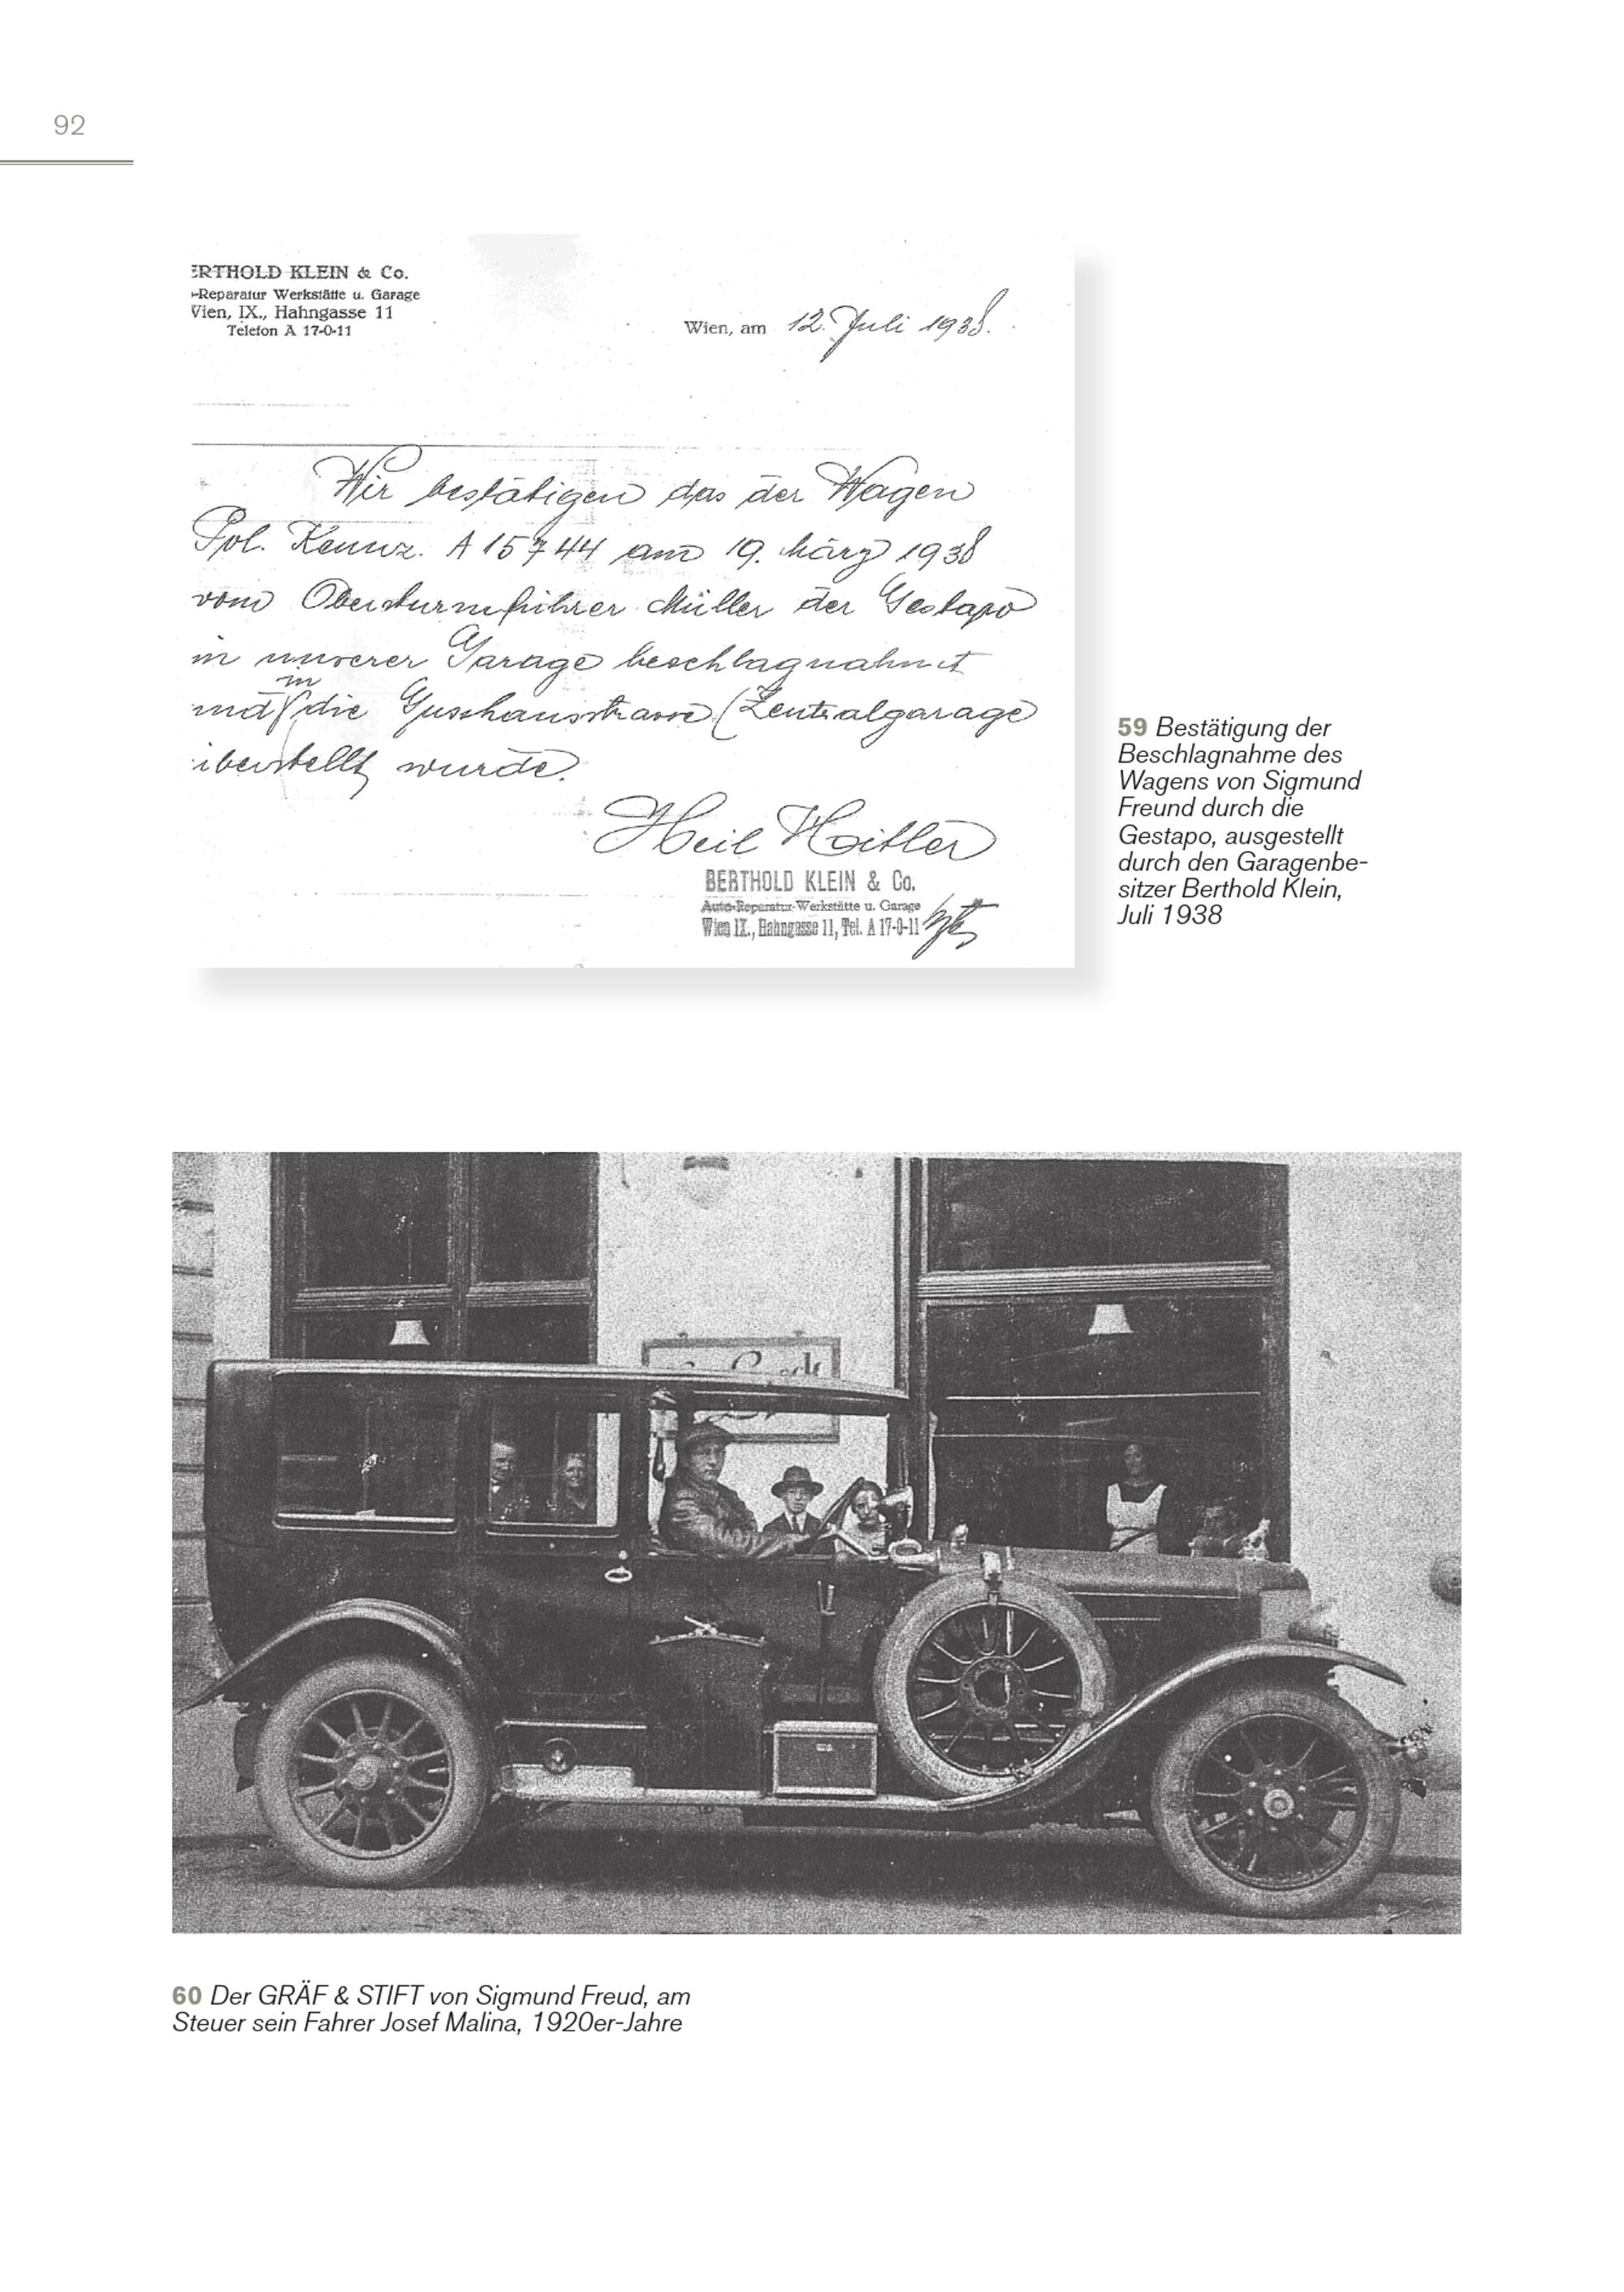 92
ERTHOLD KLEIN & Co.
-Reparatur Werkstätte u. Garage
Wien, IX., Hahngasse 11
Telefon A 17-0-11
Wien, am 12. Juli 1938.
Wir bestätigen das der Wagen
Pol. Kennz. A 15744 am 19. März 1938
vom Obersturmführer Müller der Gestapo
in unserer Garage beschlagnahmt
und in die Gusshausstrasse (Zentralgarage
überstellt wurde.
Heil Hitler
BERTHOLD KLEIN & Co.
Auto-Reparatur-Werkstätte u. Garage
Wien IX., Hahngasse 11, Tel. A 17-0-11
59 Bestätigung der
Beschlagnahme des
Wagens von Sigmund
Freund durch die
Gestapo, ausgestellt
durch den Garagenbe-
sitzer Berthold Klein,
Juli 1938
60 Der GRÄF & STIFT von Sigmund Freud, am
Steuer sein Fahrer Josef Malina, 1920er-Jahre